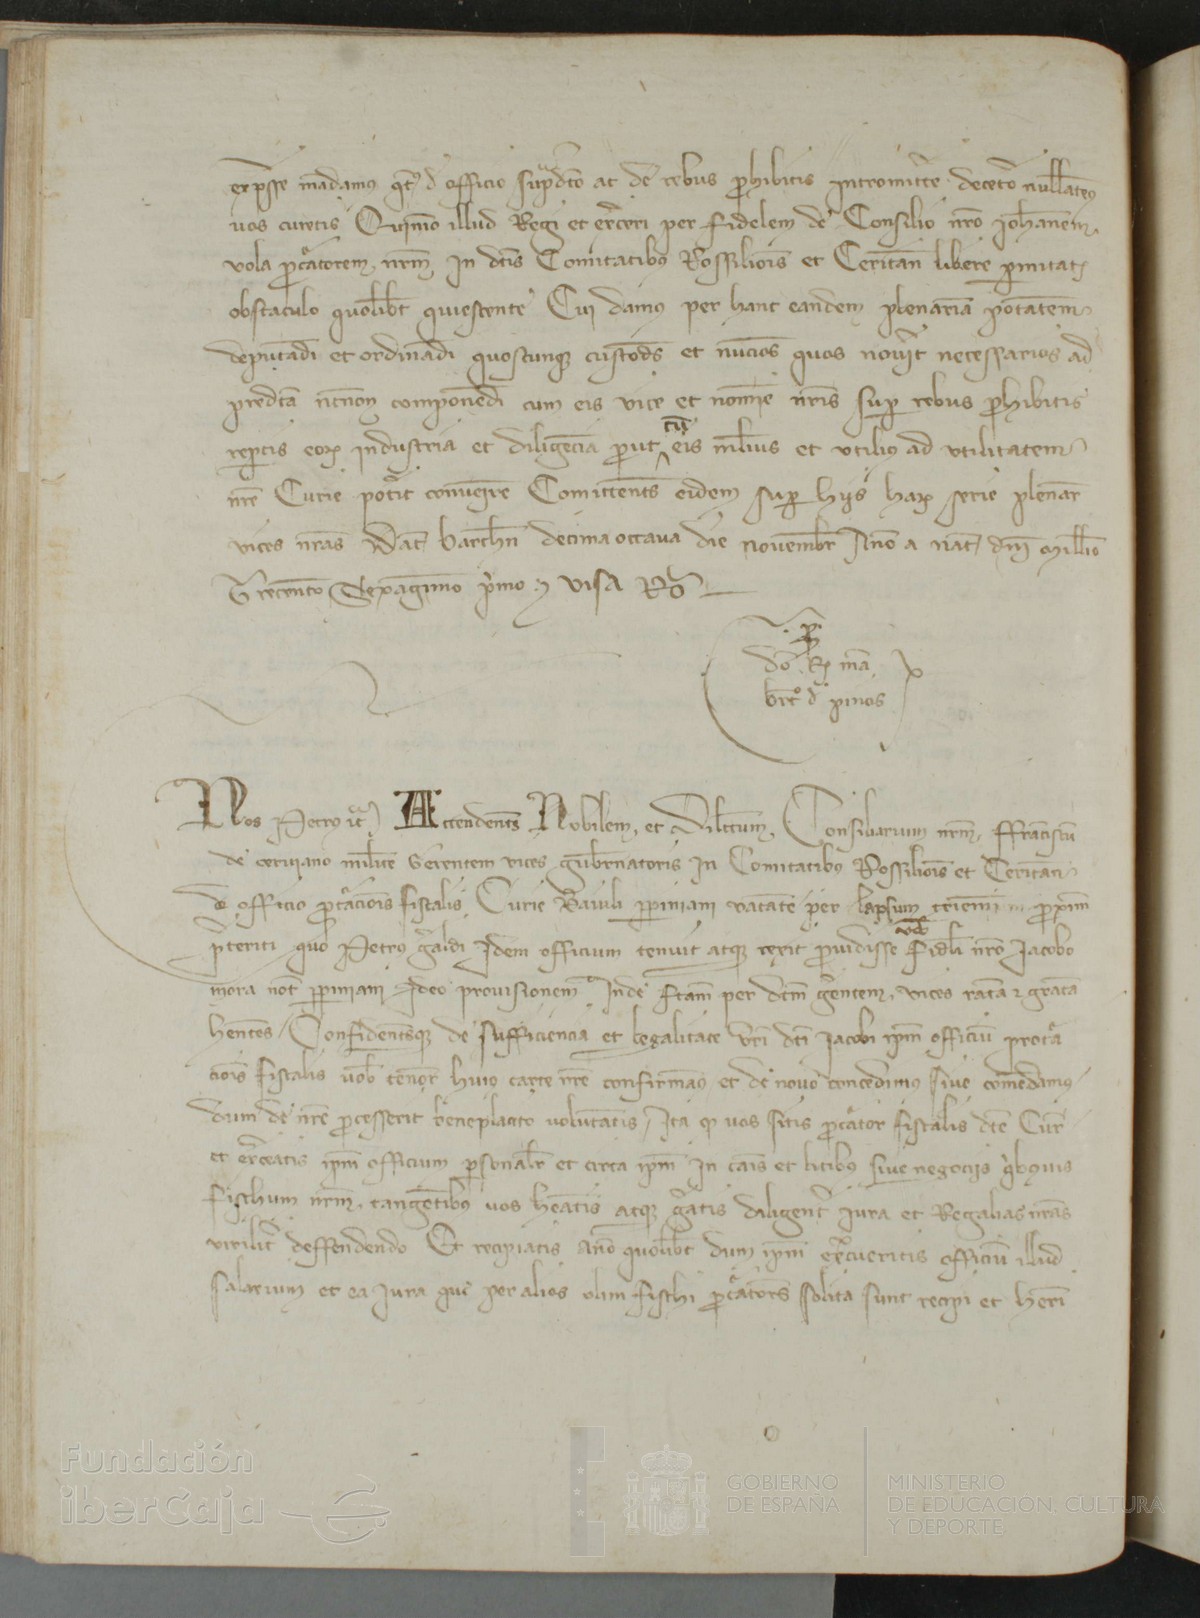 expresse mandamus qt° de officio supradcto ac de rebus prohibitis intromittere decetero nullatenus
vos curetis Quinimo illud Regi et exerceri per fidelem de Consilio nro Johanem
vola procuratorem nrm in dctis Comitatibus Rossilionis et Ceritan libere permitatis
obstaculo quolibet quiescente Cui damus per hanc eandem plenariam potestatem
deputandi et ordinandi quoscunque custodes et nuncios quos noverit necessarios ad
predcta necnon componendi cum eis vice et nomine nris super rebus prohibitis
repertis eorum industria et diligencia prout cu eis melius et utilius ad utilitatem
nre Curie poterit convenire Comittentes eidem super hijs harum serie plenar
vices nras Dat Barchn decima octava die novembr Anno a nat dni Millio
Trecento Sexagesimo primo visa Ro
p
dom Reg ma
de pinos
Nos Petrus etc Attendentes Nobilem et dilectum Consiliarium nrm ffranciscum
de cervyano militem Gerentem vices gubernatoris in Comitatibus Rossilionis et Ceritan
de officio procuracionis fiscalis Curie Baiuli perpiniani vacante per lapsum triennii proxim
preteriti quo Petrus Geraldi idem officium tenuit atque rexit providisse vob fideli nro Jacobo
mora not perpiniani Ideo provisionem inde fctam per dctm gerentem vices ratam et gratam
hentes Confidentesque de sufficiencia et legalitate vri dcti Jacobi ipm officium procura
cionis fiscalis vob tenore huius carte nre confirmamus et de novo concedimus sive comendamus
dum de nre processerit beneplacito voluntatis Ita quod vos sitis procurator fiscalis dcte Cur
et exerceatis ipm officium personaliter et circa ipm in causis et litibus sive negociis quibusvis
fischum nrm tangentibus vos heatis atque geratis diligenter Jura et Regalias nras
viriliter deffendendo Et recipiatis anno quolibet dum ipm exercueritis officium illud
salarium et ea Jura que per alios olim fischi procuratores solita sunt recipi et heri
Fundación
iberCaja
GOBIERNO
DE ESPAÑA
MINISTERIO
DE EDUCACIÓN, CULTURA
Y DEPORTE